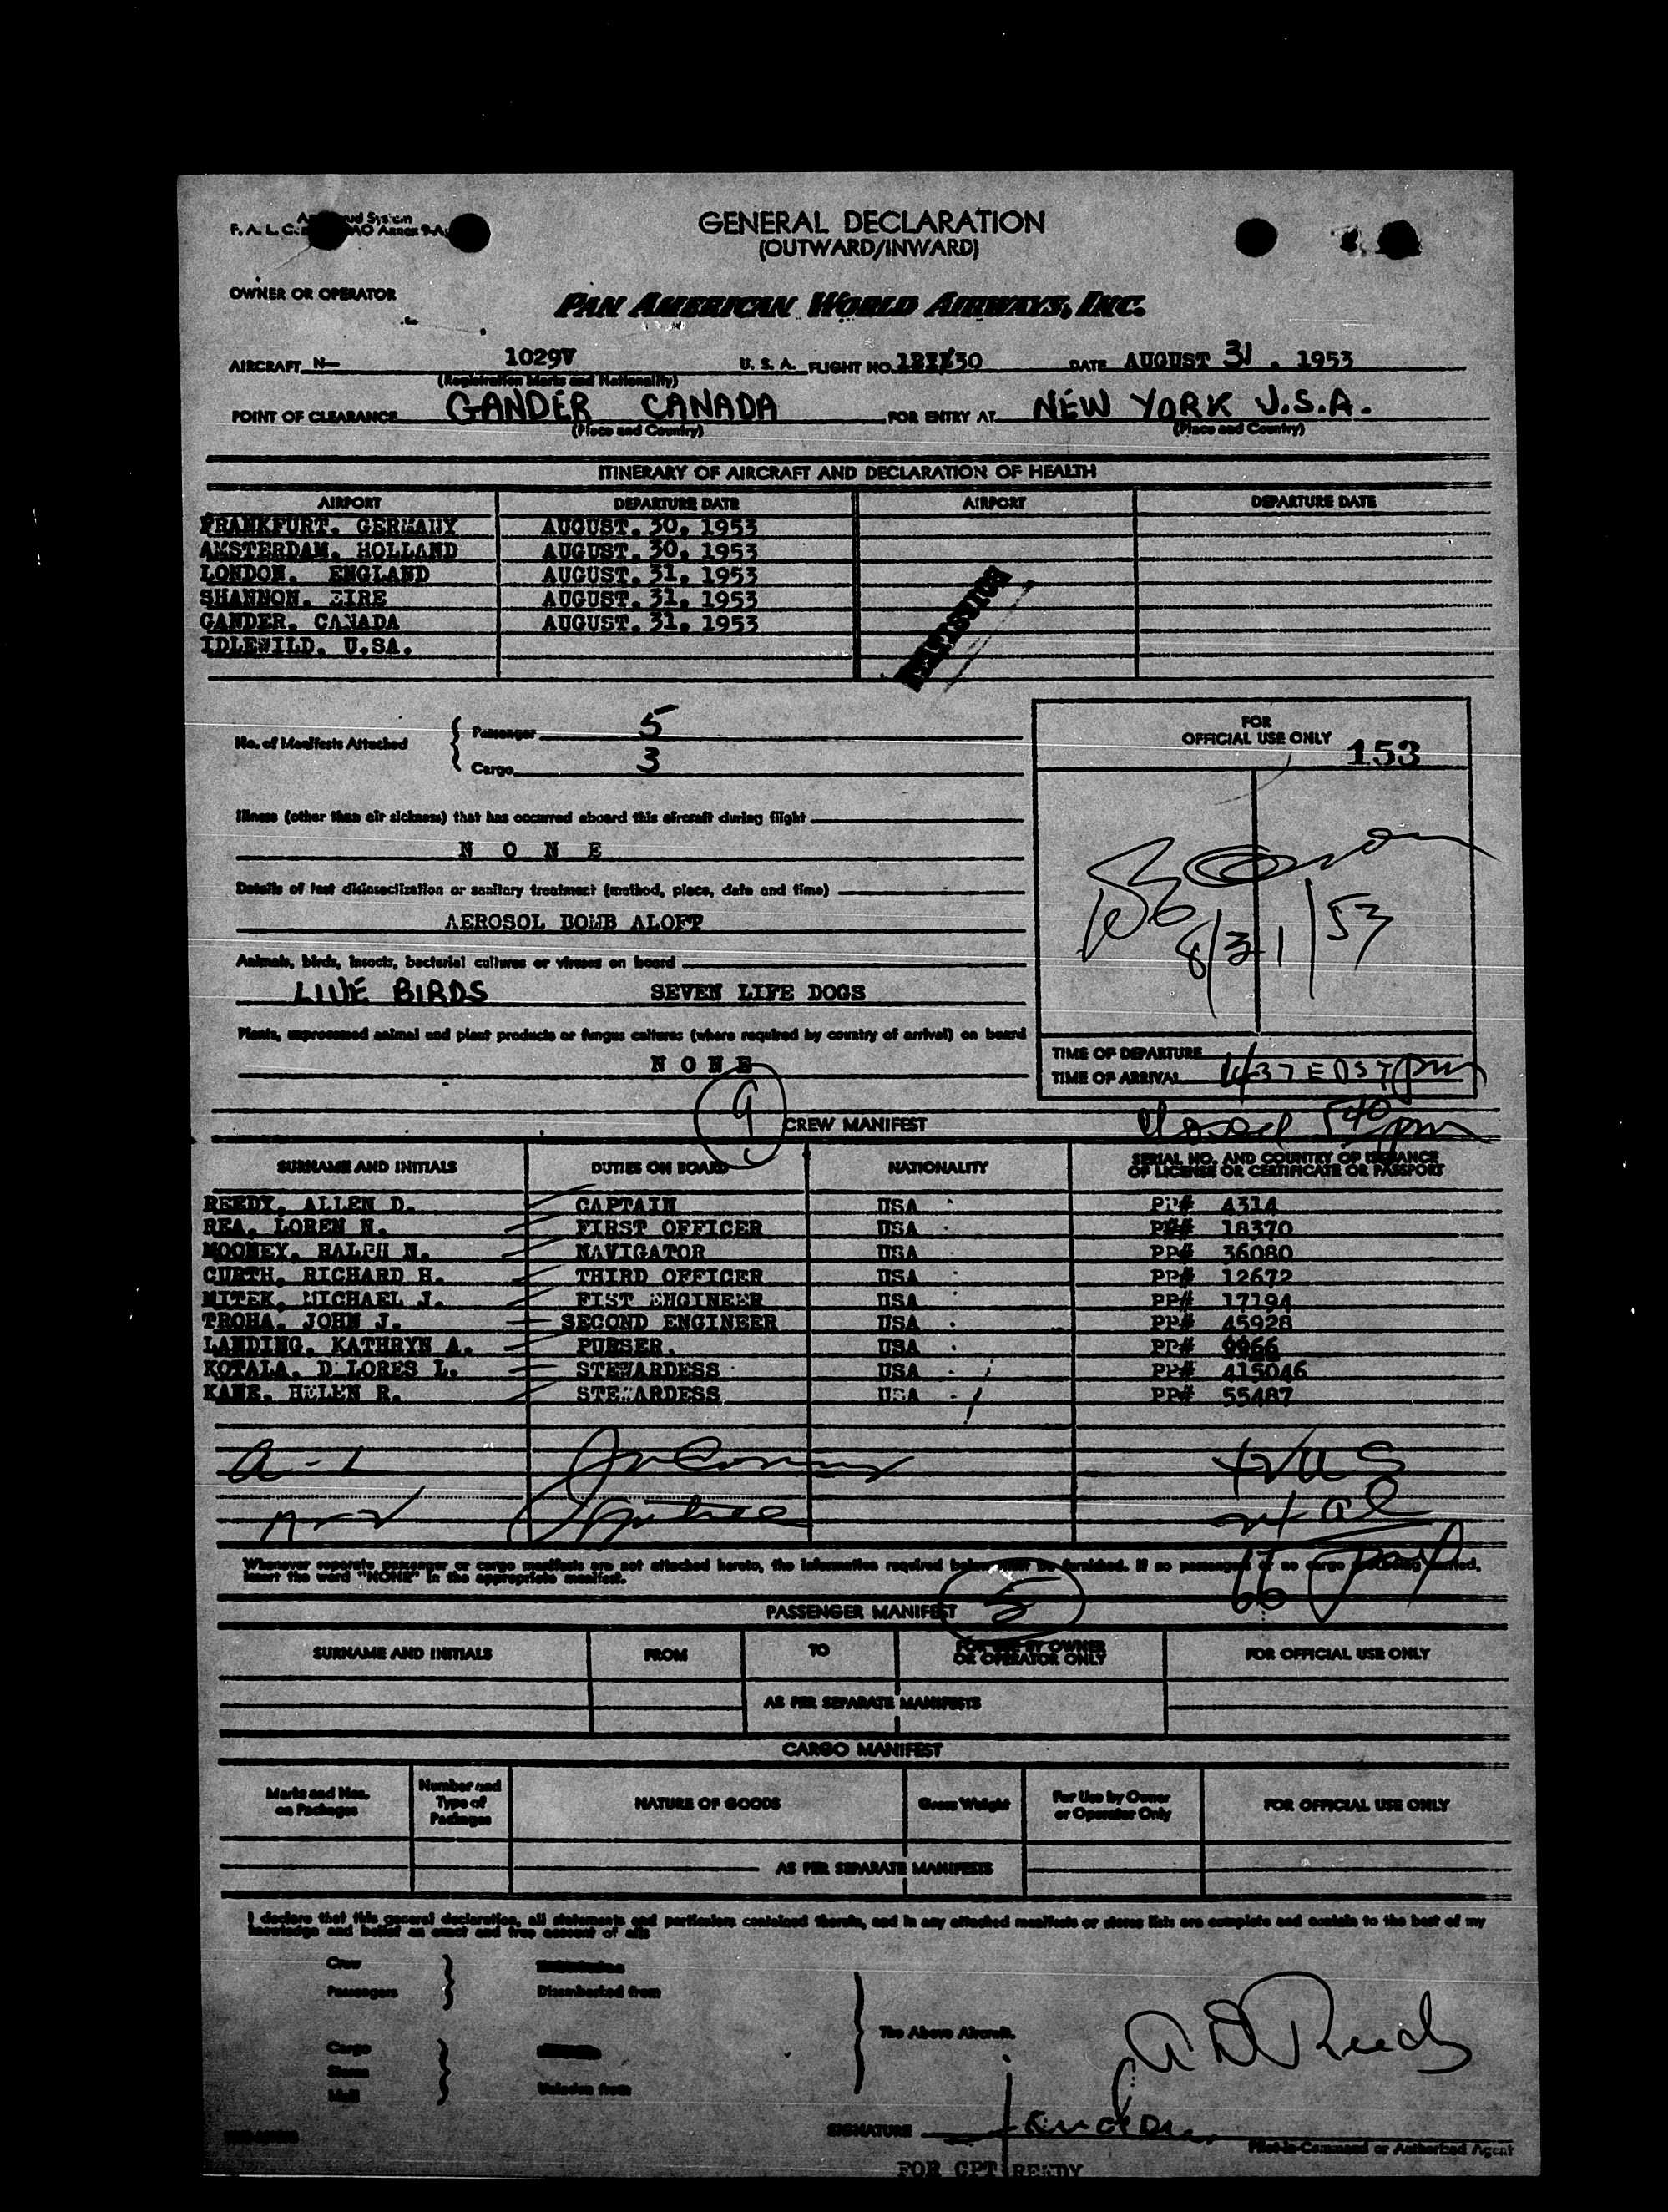 GENERAL DECLARATION
(OUTWARD/INWARD)
F. A. L. C. AO Annex 9-A
OWNER OR OPERATOR
PAN AMERICAN WORLD AIRWAYS, INC.
AIRCRAFT N— 1029V U. S. A. FLIGHT NO. 30 DATE AUGUST 31 . 1953
(Registration Marks and Nationality)
POINT OF CLEARANCE GANDER CANADA FOR ENTRY AT NEW YORK U.S.A.
(Place and Country) (Place and Country)
ITINERARY OF AIRCRAFT AND DECLARATION OF HEALTH
AIRPORT DEPARTURE DATE AIRPORT DEPARTURE DATE
FRANKFURT. GERMANY AUGUST. 30, 1953
AMSTERDAM. HOLLAND AUGUST. 30, 1953
LONDON. ENGLAND AUGUST. 31, 1953
SHANNON. EIRE AUGUST. 31, 1953
GANDER. CANADA AUGUST. 31, 1953
IDLEWILD. U.SA.
No. of Manifests Attached { Passenger 5
Cargo 3
FOR
OFFICIAL USE ONLY 153
Illness (other than air sickness) that has occurred aboard this aircraft during flight
N O N E
Details of last disinsectization or sanitary treatment (method, place, date and time)
AEROSOL BOMB ALOFT
8/31/53
Animals, birds, insects, bacterial cultures or viruses on board
LIVE BIRDS SEVEN LIFE DOGS
Plants, unprocessed animal and plant products or fungus cultures (where required by country of arrival) on board
N O N E
TIME OF DEPARTURE
TIME OF ARRIVAL 4/37 EDST pm
Closed 5 40 pm
9
CREW MANIFEST
SURNAME AND INITIALS DUTIES ON BOARD NATIONALITY SERIAL NO. AND COUNTRY OF ISSUANCE
OF LICENSE OR CERTIFICATE OR PASSPORT
REEDY, ALLEN D. CAPTAIN USA PP# 4314
REA, LOREN N. FIRST OFFICER USA PP# 18370
MOONEY, RALPH N. NAVIGATOR USA PP# 36080
CURTH, RICHARD H. THIRD OFFICER USA PP# 12672
MITEK, MICHAEL J. FIST ENGINEER USA PP# 17194
TROHA, JOHN J. SECOND ENGINEER USA PP# 45928
LANDING, KATHRYN A. PURSER. USA PP# 9966
KOTALA, D LORES L. STEWARDESS USA PP# 415046
KANE, HELEN R. STEWARDESS USA PP# 55487
Whenever separate passenger or cargo manifests are not attached hereto, the information required below must be furnished. If no passengers or no cargo are being carried,
insert the word "NONE" in the appropriate manifest.
5
PASSENGER MANIFEST
SURNAME AND INITIALS FROM TO FOR USE BY OWNER
OR OPERATOR ONLY FOR OFFICIAL USE ONLY
AS PER SEPARATE MANIFESTS
CARGO MANIFEST
Marks and Nos.
on Packages Number and
Type of
Packages NATURE OF GOODS Gross Weight For Use by Owner
or Operator Only FOR OFFICIAL USE ONLY
AS PER SEPARATE MANIFESTS
I declare that this general declaration, all statements and particulars contained therein, and in any attached manifests or stores lists are complete and contain to the best of my
knowledge and belief an exact and true account of all:
Crew
Passengers Disembarked from
The Above Aircraft.
A D Reedy
Cargo
Stores
Mail Unladen from
SIGNATURE
Pilot-in-Command or Authorized Agent
FOR CPT REEDY